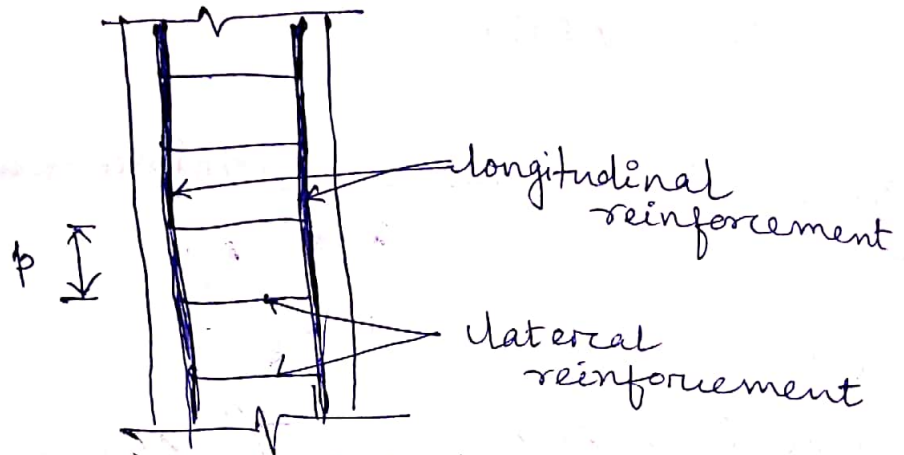 longitudinal
reinforcement
p
lateral
reinforcement